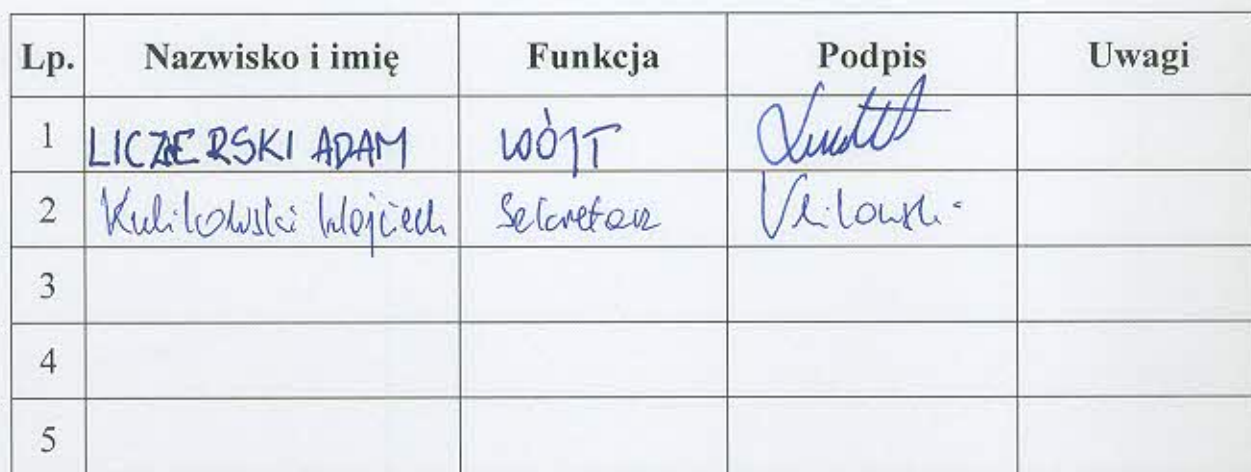 Lp. Nazwisko i imię Funkcja Podpis Uwagi
1 LICZERSKI ADAM WÓJT
2 Kulikowski Wojciech Sekretarz
3
4
5